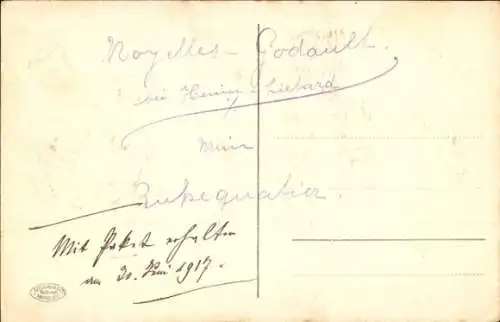 Noyelles - Godault.
bei Henin - Liebard
Mein
Ruhequatier.
Mit Paket erhalten
am 20. Juni 1917.